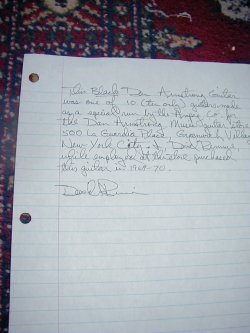 This Black Dan Armstrong Guitar
was one of 10 (ten only) guitars made
as a special run by the Ampeg Co. for
the Dan Armstrong Music Guitar Store
500 La Guardia Place, Greenwich Village
New York City. I, David
while employed at the store purchased
this guitar in 1969-70.
David